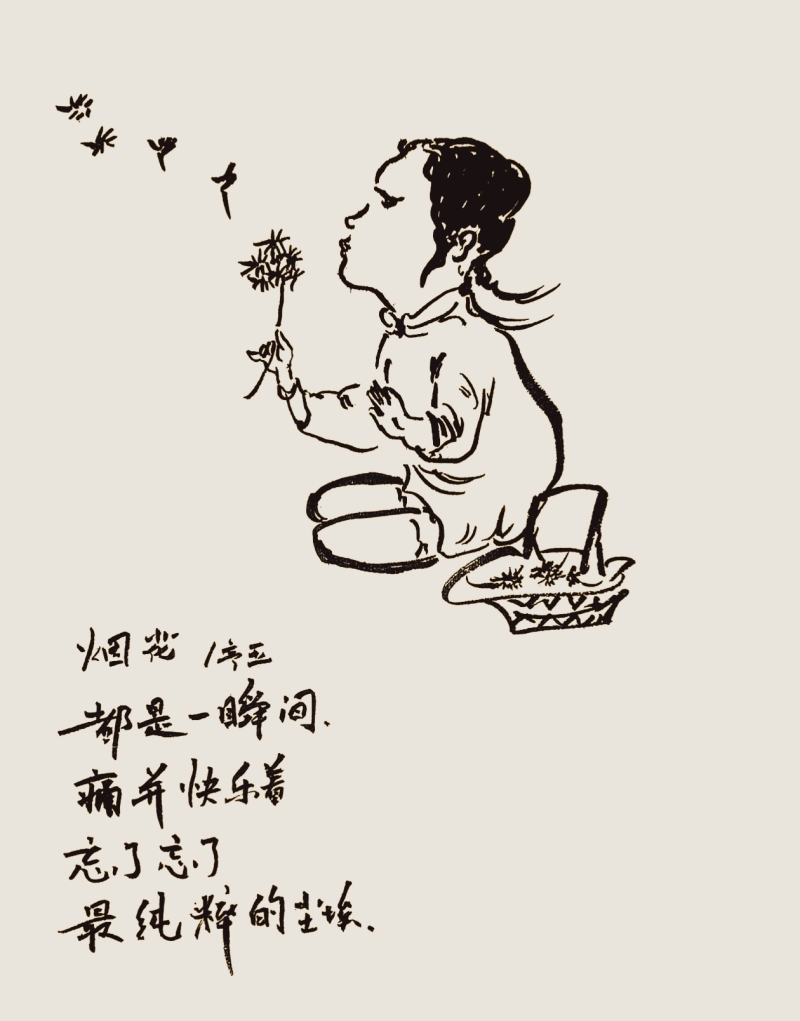 烟花
都是一瞬间.
痛并快乐着
忘了忘了
最纯粹的尘埃.